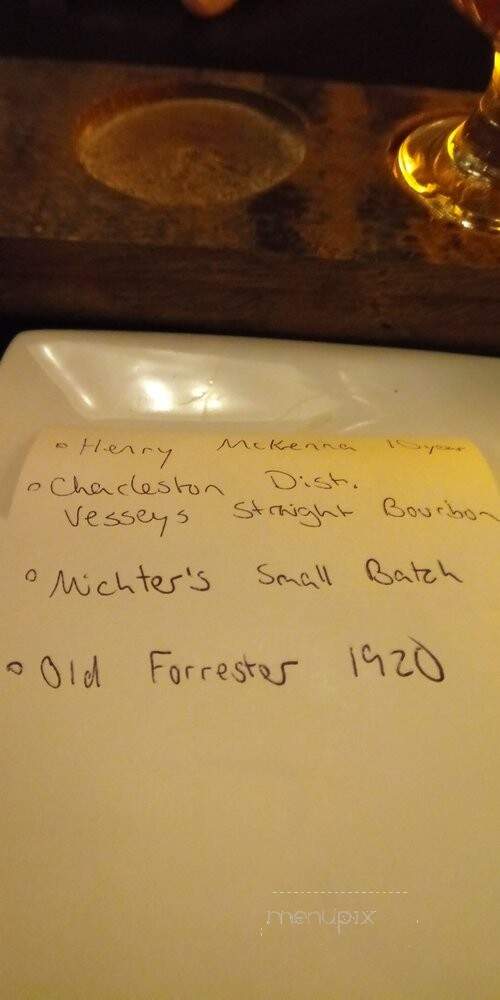 Henry McKenna 10 year
Charleston Dist.
Vesseys Straight Bourbon
Michter's Small Batch
Old Forrester 1920
menupix